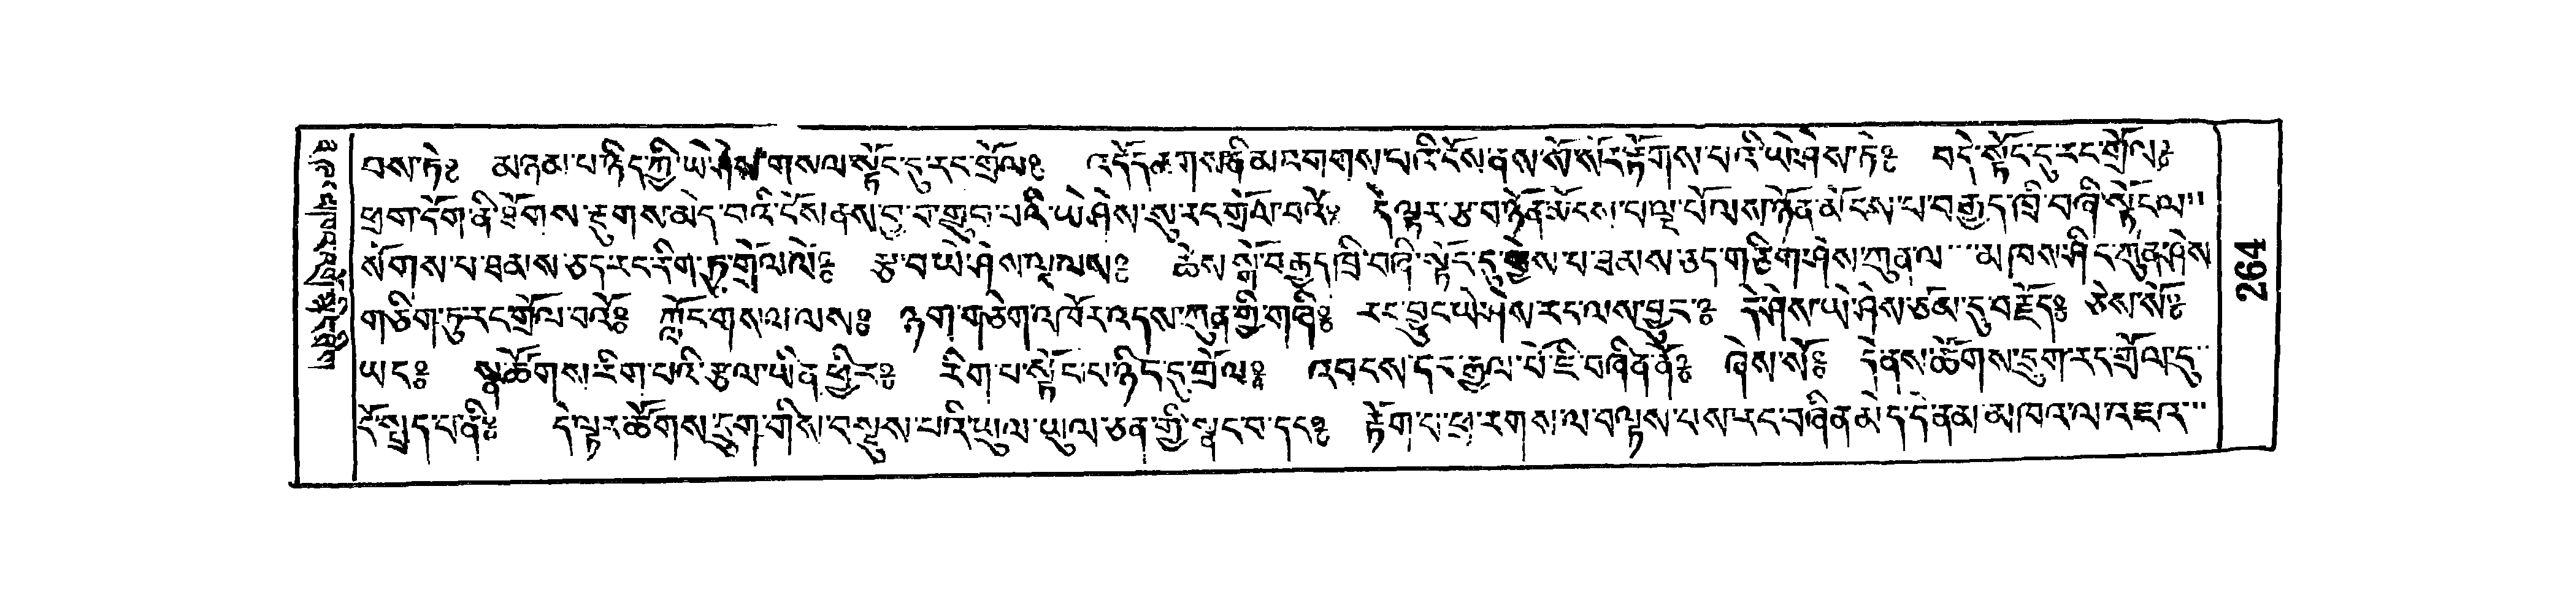 བས་ཏེ༔ མཉམ་པ་ཉིད་ཀྱི་ཡེ་ཤེས་གསལ་སྟོང་དུ་རང་གྲོལ༔ འདོད་ཆགས་ནི་མ་འགགས་པའི་ངོས་ནས་སོ་སོར་རྟོགས་པའི་ཡེ་ཤེས་ཏེ༔ བདེ་སྟོང་དུ་རང་གྲོལ༔
ཕྲག་དོག་ནི་ཐོགས་རྡུགས་མེད་པའི་ངོས་ནས་བྱ་བ་གྲུབ་པའི་ཡེ་ཤེས་སུ་རང་གྲོལ་བའོ༔ དེ་ལྟར་རྩ་བ་ཉོན་མོངས་པ་ལྔ་པོ་ལས་ཉོན་མོངས་པ་བརྒྱད་ཁྲི་བཞི་སྟོང་ལ་
སོགས་པ་ཐམས་ཅད་རང་རིག་ཏུ་གྲོལ་ལེ༔ རྩ་བ་ཡེ་ཤེས་ལྔ་ལས༔ ཆོས་སྒོ་བརྒྱད་ཁྲི་བཞི་སྟོང་དུ་ཕྱེས་པ་ཐམས་ཅད་གཅིག་ཤེས་ཀུན་ལ་མཁས་ཤིང་ཀུན་ཤེས་
གཅིག་ཏུ་རང་གྲོལ་བའོ༔ ཀློང་གསལ་ལས༔ ཉག་གཅིག་འཁོར་འདས་ཀུན་གྱི་གཞི༔ རང་བྱུང་ཡེ་ཤེས་རང་ལས་བྱུང་༔ དེ་ཤེས་ཡེ་ཤེས་ཙམ་དུ་བརྗོད༔ ཅེས་སོ༔
ཡང༔ སྣ་ཚོགས་རིག་པའི་རྩལ་ཡིན་ཕྱིར༔ རིག་པ་སྟོང་པ་ཉིད་དུ་གྲོལ༔ འབངས་དང་རྒྱལ་པོ་ཇི་བཞིན་ནོ༔ ཞེས་སོ༔ དེ་ནས་ཚོགས་དྲུག་རང་གྲོལ་དུ་
ངོ་སྤྲད་པ་ནི༔ དེ་ལྟར་ཚོགས་དྲུག་གིས་བསྡུས་པའི་ཡུལ་ཡུལ་ཅན་གྱི་སྣང་བ་དང༔ རྟོག་པ་ཕྲ་རགས་ལ་བལྟས་པས་རང་བཞིན་མེད་དེ་ནམ་མཁའ་ལ་འཇའ་